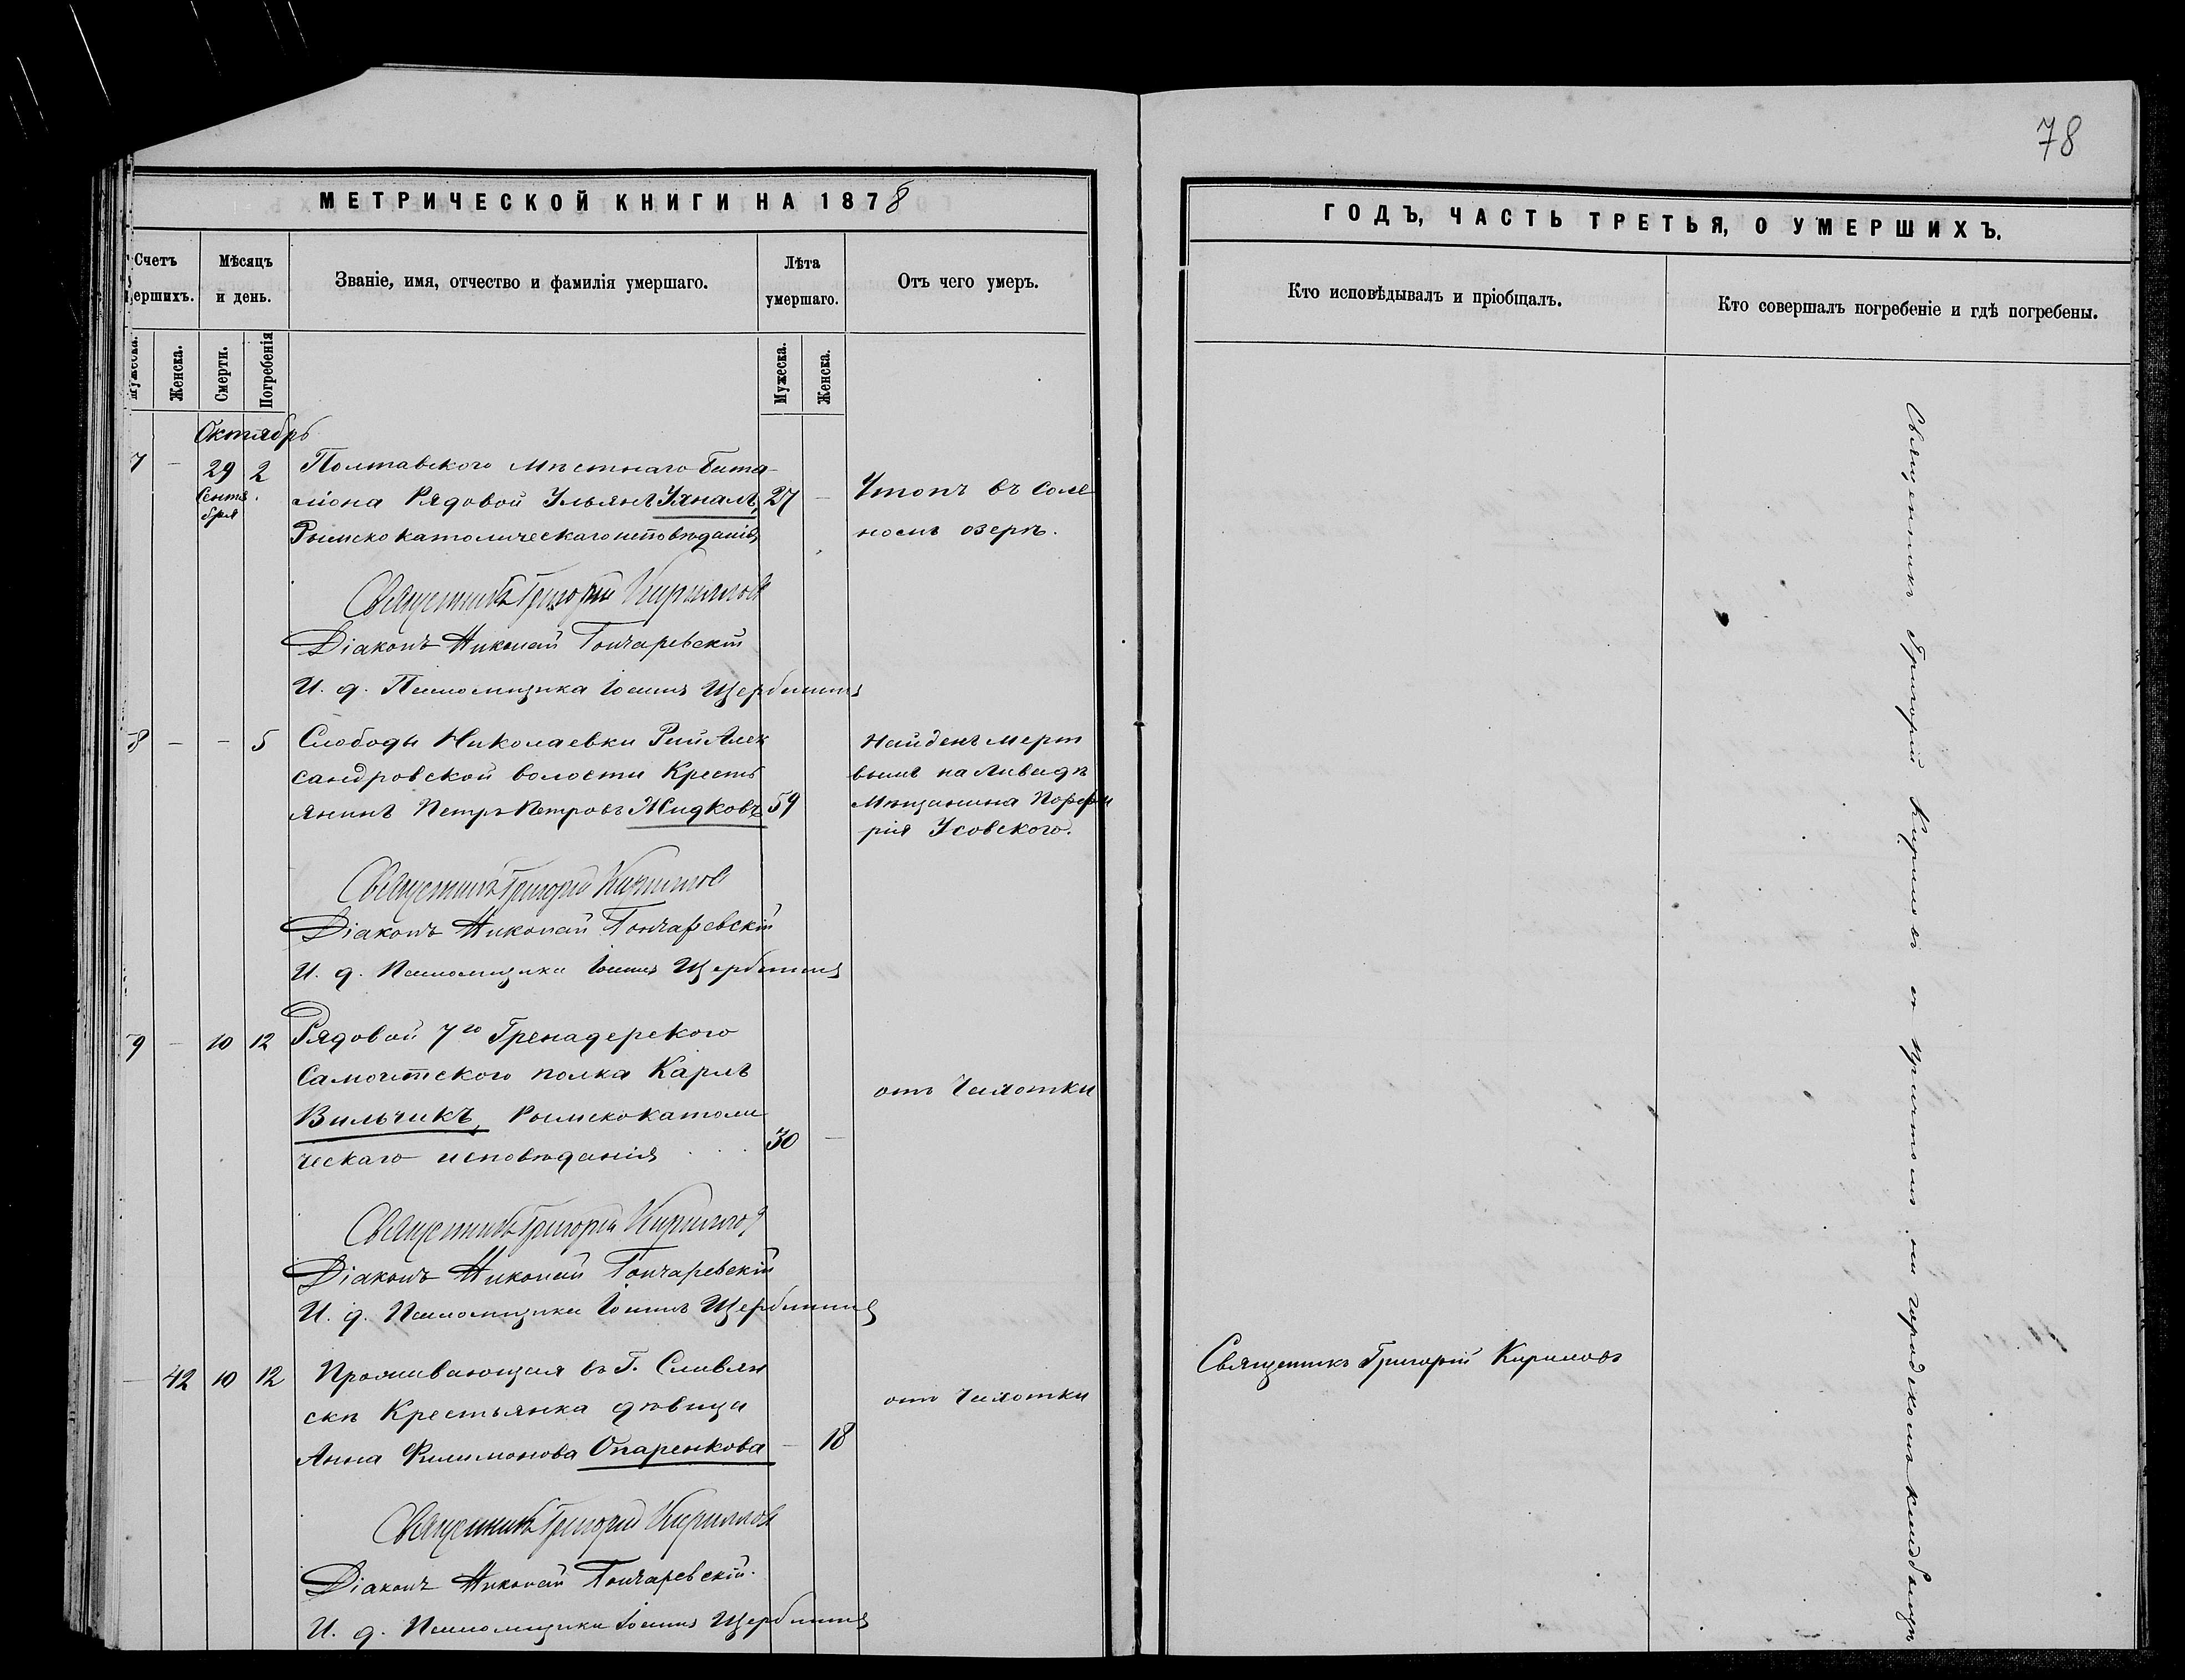 78
МЕТРИЧЕСКОЙ КНИГИ НА 1878
ГОДЪ, ЧАСТЬ ТРЕТЬЯ, О УМЕРШИХЪ.
Счетъ
ершихъ.
Мѣсяцъ
и день.
Званіе, имя, отчество и фамилія умершаго.
Лѣта
умершаго.
Отъ чего умеръ.
Кто исповѣдывалъ и пріобщалъ.
Кто совершалъ погребеніе и гдѣ погребены.
Мужеска.
Женска.
Смерти.
Погребенія
Мужеска.
Женска.
Октябрь
7 - 29 2 Полтавского мѣстнаго бата-
Сентя
бря
ліона Рядовой Ульянъ 27 -
Римско католическаго исповѣданія
Утопъ въ соле
номъ озерѣ.
Священникъ Григорій Кириловъ
Діаконъ Николай Гончаревскій
И. д. Псаломщика Іоаннъ Щербининъ
8 - - 5 Слободы Николаевки Рай Алек
сандровской волости Кресть
янинъ Петръ Петровъ Жидковъ 59
Найденъ мерт
вымъ на Ливадѣ
Мѣщанина Порфи
рія Усовского.
Священникъ Григорій Кириловъ
Діаконъ Николай Гончаревскій
И. д. Псаломщика Іоаннъ Щербининъ
9 - 10 12 Рядовой 7го Гренадерского
Самогитского полка Карлъ
Вильчикъ, Римско католи
ческаго исповѣданія 30 -
отъ Чахотки
Священникъ Григорій Кириловъ
Діаконъ Николай Гончаревскій
И. д. Псаломщика Іоаннъ Щербининъ
- 42 10 12 Проживающая въ Г. Славян
скѣ Крестьянка дѣвица
Анна Филимонова Опаренкова - 18
отъ Чахотки
Священникъ Григорій Кириловъ
Священникъ Григорій Кириловъ
Діаконъ Николай Гончаревскій.
И. д. Псаломщика Іоаннъ Щербининъ
Священникъ Григорій Кириловъ съ причтомъ на городскомъ кладбищѣ